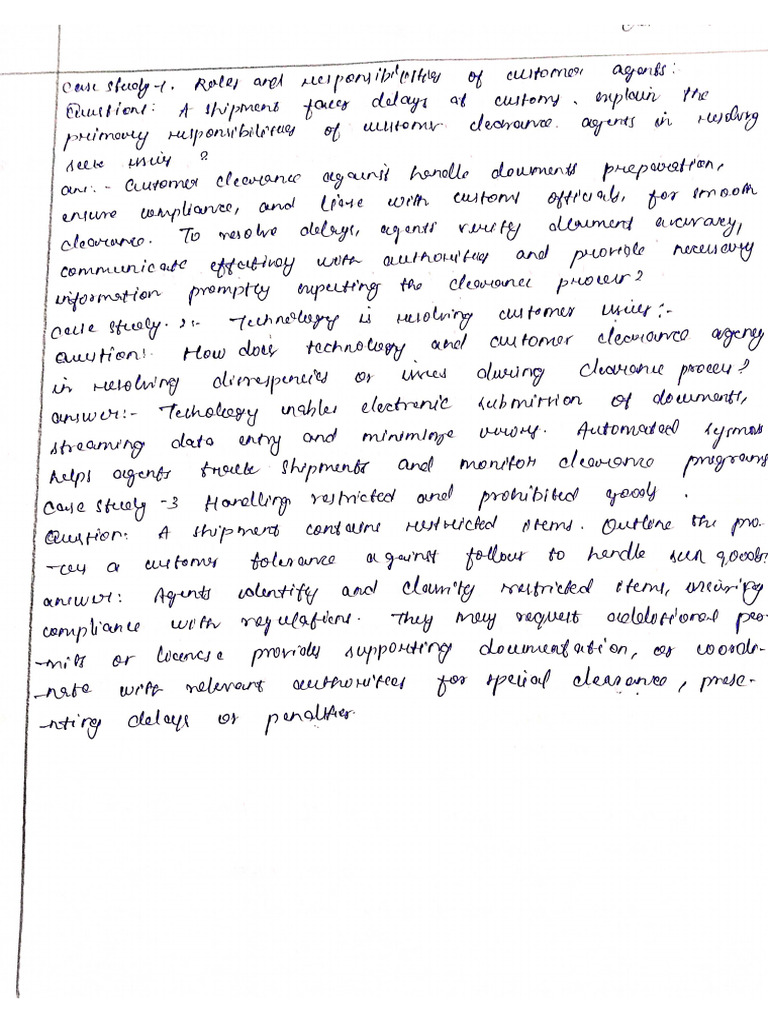 Case study-1. Roles and responsibilities of customer agents:
Question: A shipment faces delays at customs. explain the
primary responsibilities of customer clearance agents in resolving
ans:- Customer clearance against handle douments preparation,
ensure compliance, and liese with customs officials, for smooth
clearance. To resolve delays, agents verify document accuracy,
communicate effectively with authorities and provide necessary
information promptly expecting the clearance process?
Case study. 2:- Technology is resolving customer issues:-
Question:. How does technology and customer clearance agency
in resolving discrepencies or issues during clearance process?
answer:- Techology enables electronic submission of documents,
streaming data entry and minimize errors. Automated systems
helps agents track shipments and monitor clearance programs
Case study -3 Handling restricted and prohibited goods.
Question: A shipment contains restricted items. Outline the pro-
-ces a customer tolerance against follow to handle such goods?
answer: Agents identify and classify restricted items, ensuring
compliance with regulations. They may request additional per-
-mits or licencse provids supporting documentation, or coordi-
-nate with relevant authorities for special clearance, preve-
-nting delays or penalties.